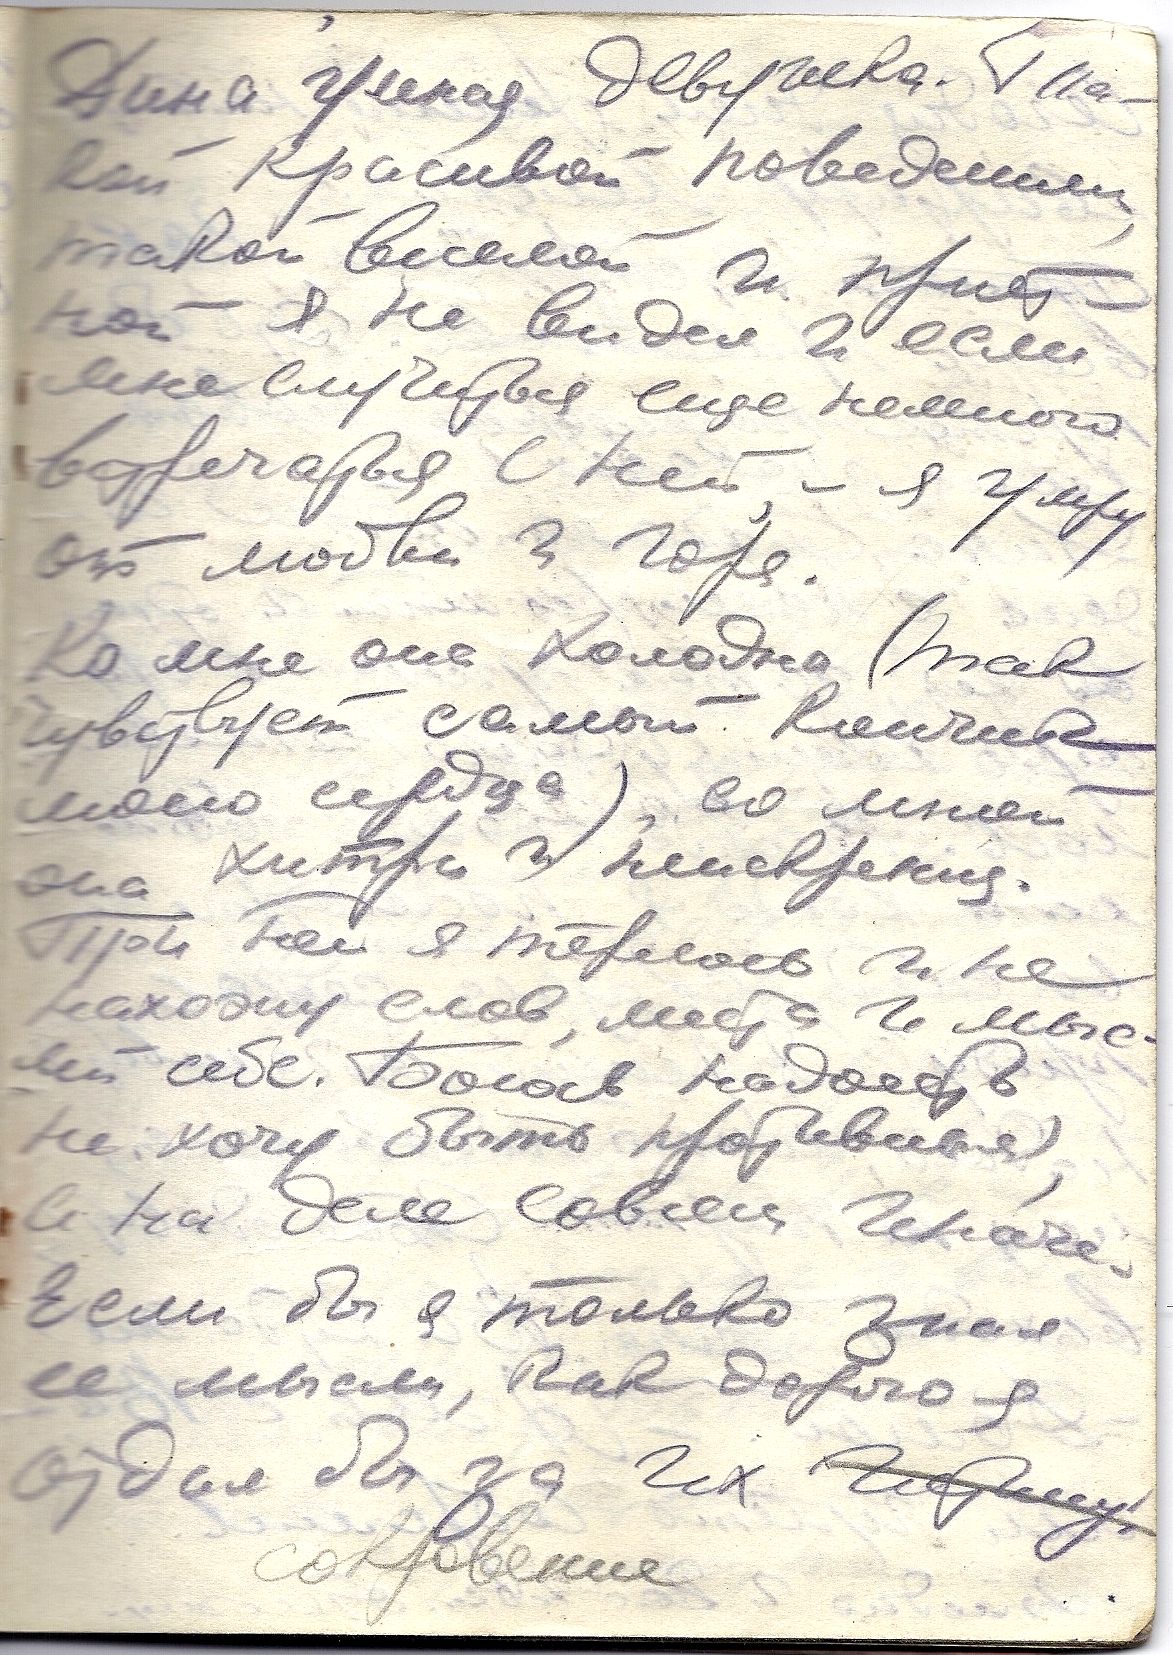 Дина умная девушка. Та-
кой красивой поведением,
такой веселой и прият-
ной я не видел и если
мне случиться еще немного
встречаться с ней, – я умру
от любви и горя.
Ко мне она холодна (так
чувствует самый кончик
моего сердца), со мной
она хитра и неискрення.
При ней я теряюсь и не
нахожу слов, места и мыс-
лей себе. Боюсь надоесть
не хочу быть противным,
а на деле совсем иначе.
Если бы я только знал
ее мысли, как дорого я
отдал бы за их
сокровение